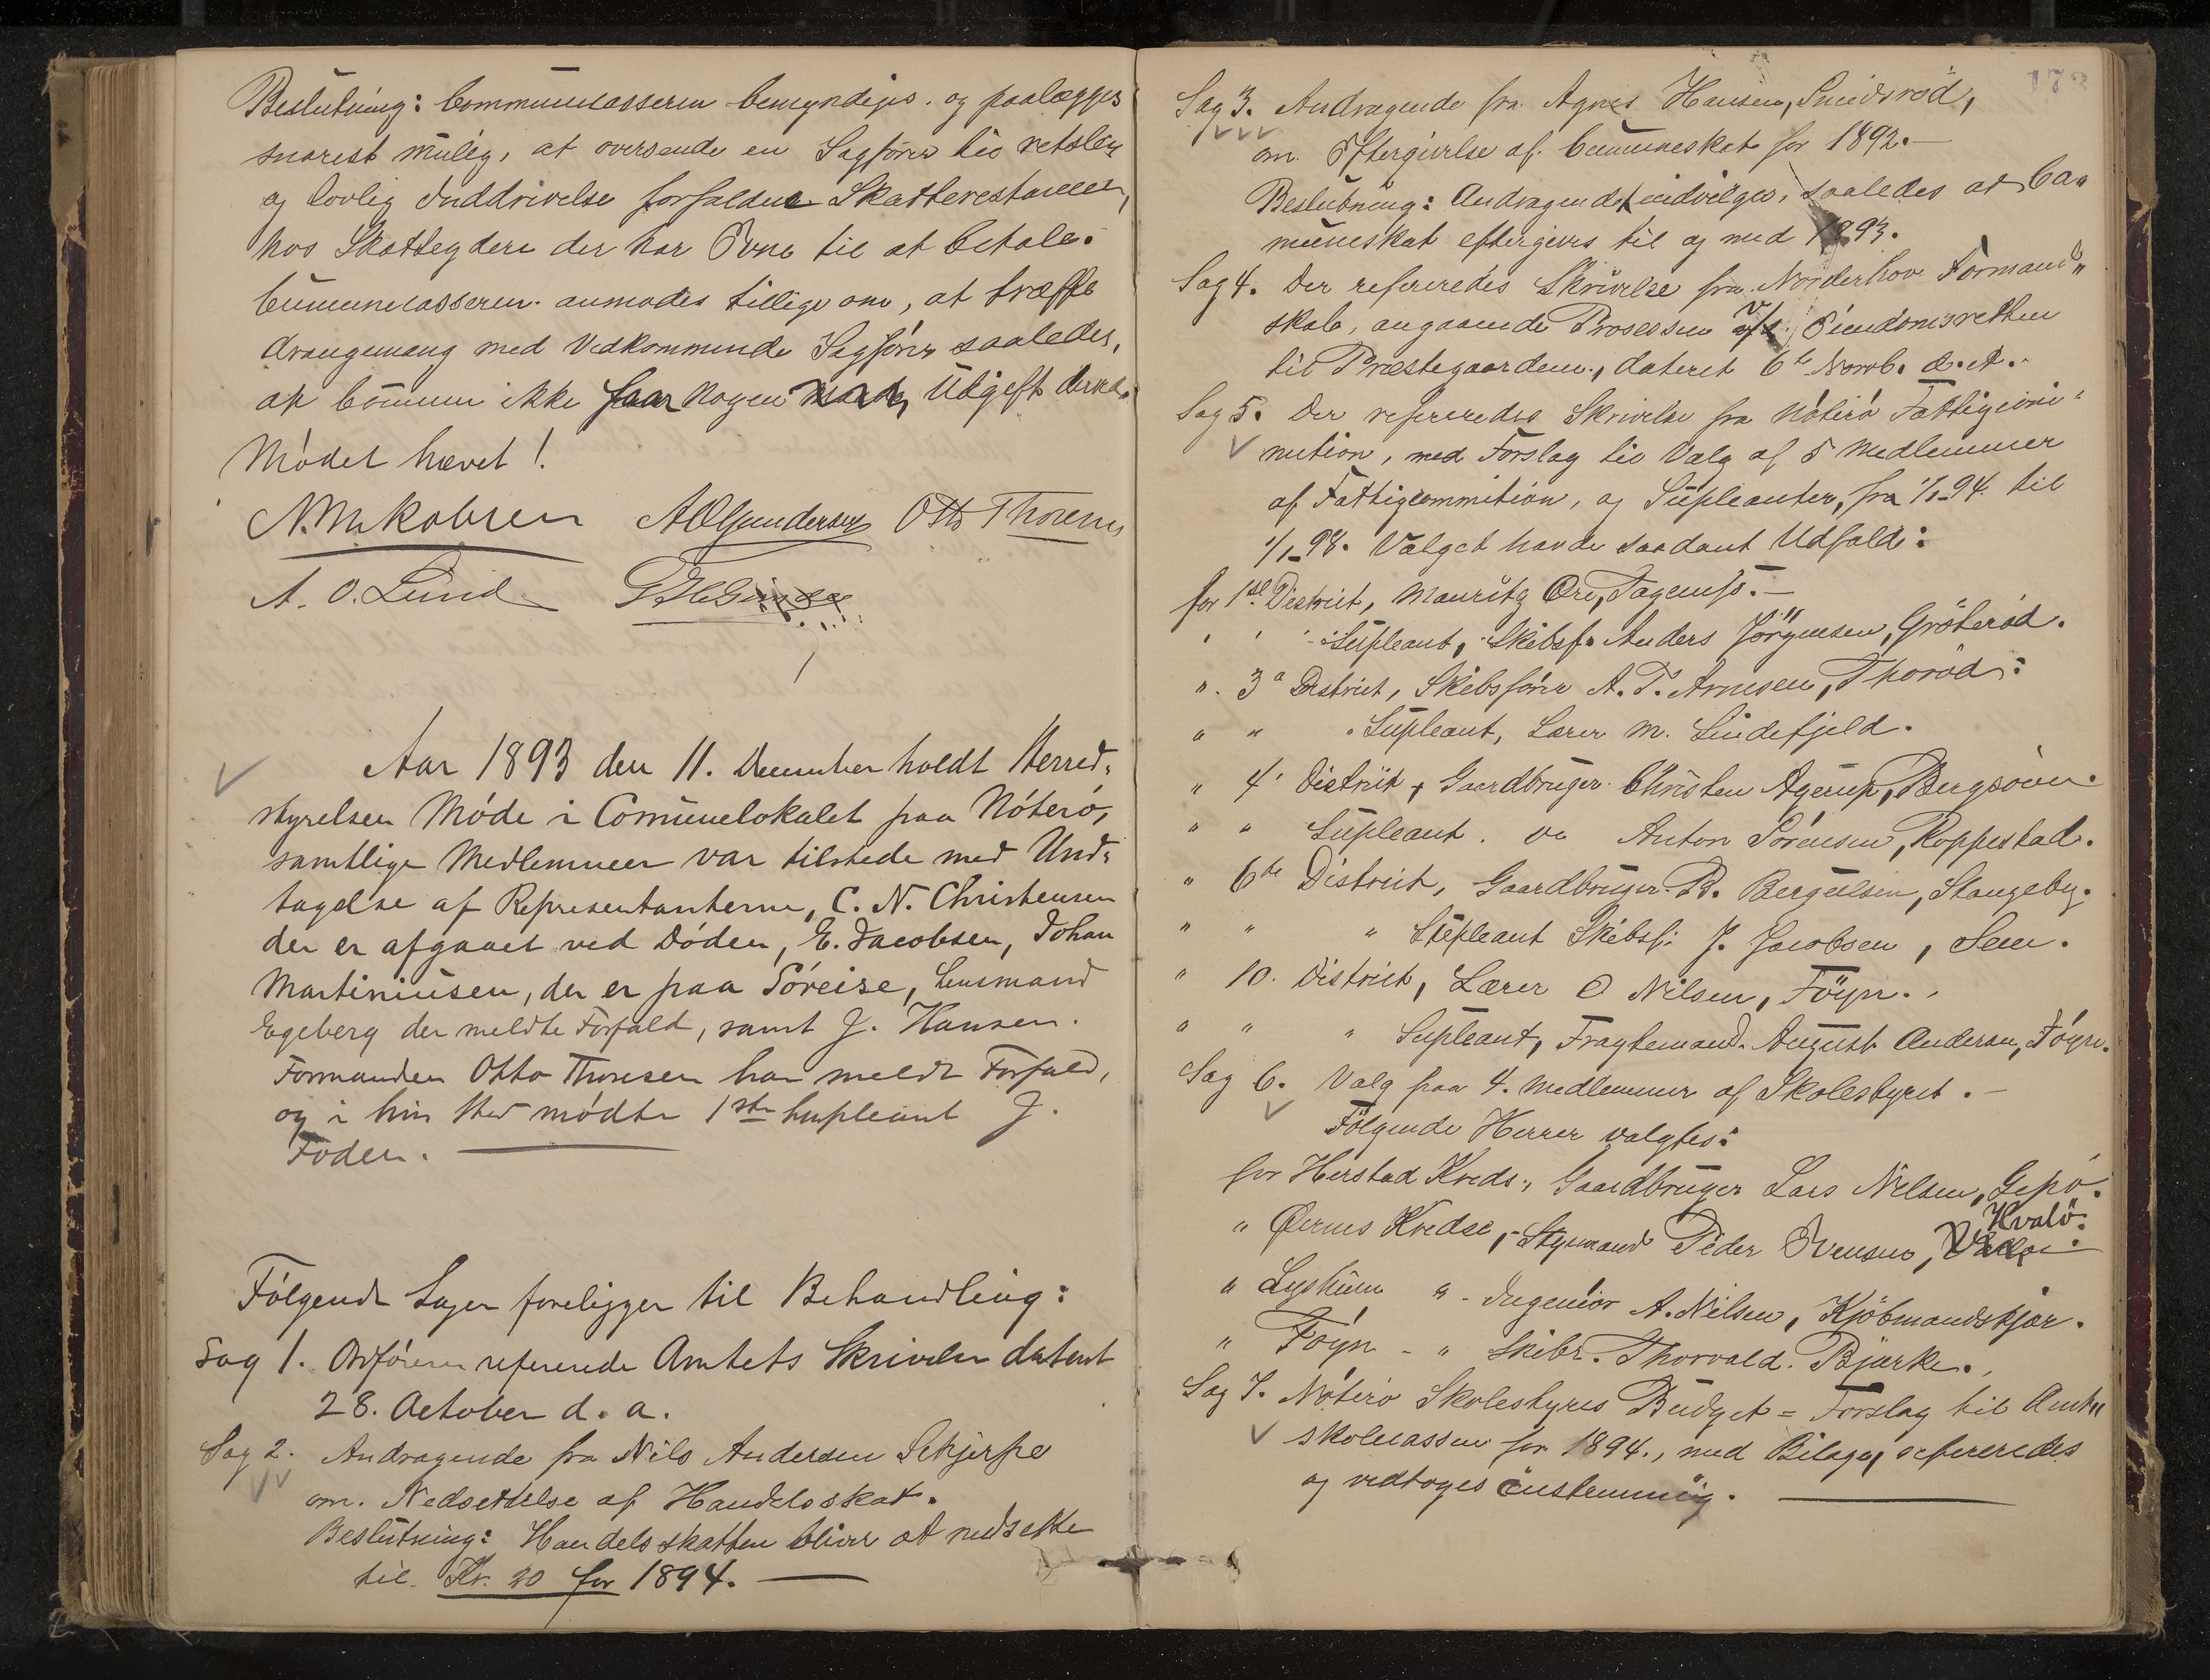 Beslutning: Communecasseren bemyndiges og paalægges
snarest mulig, at oversende en Sagfører til retslig
og lovlig Inddrivelse forfaldne Skatterestancer,
hos Skatteydere der har Evne til at betale.
Cummunecasseren anmodes tillige om, at træffe
Arangemang med Vedkommende Sagfører saaledes,
at Commun ikke faar nogen Udgift derved.
Mødet hævet!
A. O. Gundersen Otto Thoresen
A. O. Lund
Aar 1893 den 11. December holdt Herred-
styrelsen Møde i Comunelokalet paa Nøterø,
samtlige Medlemmer var tilstede med Und-
tagelse af Representanterne, C. N. Christensen
der er afgaaet ved Døden, E. Jacobsen, Johan
Martiniusen, der er paa Søreise, Lensmand
Egeberg der meldte Forfald, samt J. Hansen.
Formanden Otto Thoresen har meldt Forfald,
og i hans Sted mødte 1ste Supleant J.
Foden.
Følgende Sager foreligger til Behandling:
Sag 1. Ordføreren refererede Amtets Skrivelse datert
28. October d. a.
Sag 2. Andragende fra Nils Andersen Skjerpe
om. Nedsettelse af Handelsskat.
Beslutning: Handelsskatten bliver at nedsette
til. Kr. 20 for 1894.
173
Sag 3. Andragende fra Agnes Hansen, Smidsrød,
om Eftergivelse af Cummuneskat for 1892.
Beslutning: Andragendet indvilges, saaledes at Co„
muneskat eftergives til og med 1893.
Sag 4. Der refereredes Skrivelse fra Norderhov Formand„
skab, angaaende Prosessen Eiendomsretten
til Præstegaarden, dateret 6te Novb. d. A.
Sag 5. Der refereredes Skrivelse fra Nøterø Fattigcom=
mition, med Forslag til Valg af 5 Medlemmer
af Fattigcommition, og Supleanter, fra 1/1-94. til
1/1-98. Valget havde saadant Udfald:
for 1ste District, Mauritz Ore,
" " " Supleant, Skibsf. Anders Jørgensen, Grøterød.
" 3" District, Skibsfører A. T. Arnesen, Thorød:
" " " Supleant, Lærer M. Lindefjeld.
" 4' District, Gaardbruger Christen Agerup, Bergsøien.
" " Supleant. Anton Sørensen, Roppestad.
" 6te District, Gaardbruger B. Bergelsen, Stangeby.
" " " Supleant Skibsf. J. Jacobsen, Sem.
" 10. District, Lærer O Nilsen, Føyn.
" " " Supleant, Fragtemand August Andersen, Føyn.
Sag 6. Valg paa 4. Medlemmer af Skolestyret.
Følgende Herrer valgtes:
for Herstad Kreds, Gaardbruger Lars Nilsen, Gipø.
" Øernes Kredse, Styrmand Peder Evensen,
Kvalø.
" Lyshum " Ingeniør A. Nilsen, Kjøbmandskjær.
" Føyn - " Skibr. Thorvald Bjærke.
Sag 7. Nøterø Skolestyres Budget=Forslag til Amts„
skolecassen for 1894., med Bilager refereredes
og vedtoges enstemmig.